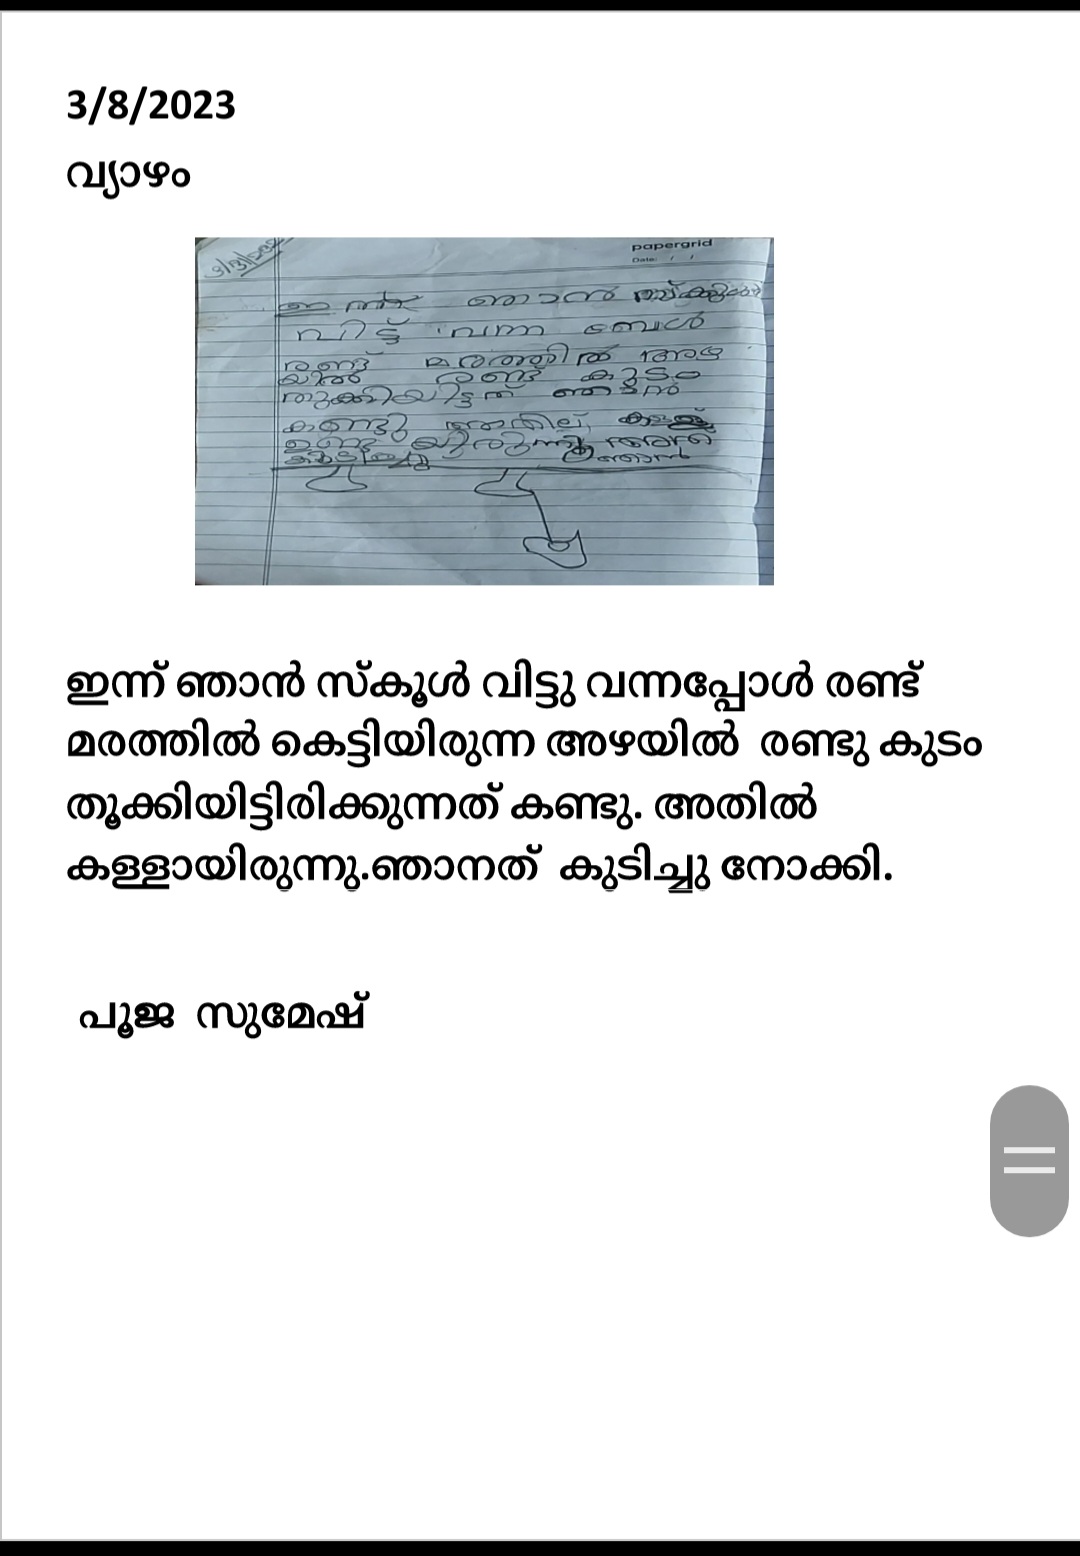 3/8/2023
വ്യാഴം
papergrid
Date: / /
ഞാൻ
വിട്ട് വന്ന
രണ്ട് മരത്തിൽ അഴ
യിൽ രണ്ട് കുടം
തുക്കിയിട്ടത് ഞാൻ
കണ്ടു
ഞാൻ
ഇന്ന് ഞാൻ സ്കൂൾ വിട്ടു വന്നപ്പോൾ രണ്ട്
മരത്തിൽ കെട്ടിയിരുന്ന അഴയിൽ രണ്ടു കുടം
തൂക്കിയിട്ടിരിക്കുന്നത് കണ്ടു. അതിൽ
കള്ളായിരുന്നു.ഞാനത് കുടിച്ചു നോക്കി.
പൂജ സുമേഷ്